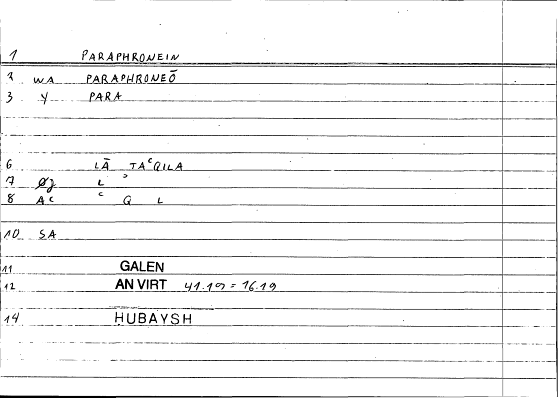 1 PARAPHRONEIN
2 WA PARAPHRONEŌ
3 Y PARA
6 LĀ TAʿQILA
7 L ʾ
8 AC ʿ Q L
10 SA
11 GALEN
12 AN VIRT 41.19 = 16.19
14 HUBAYSH